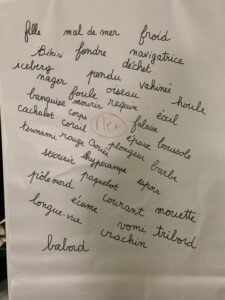 fille mal de mer froid
Bikini fondre navigatrice
iceberg déchet
nager pendu vahinée
foule oiseau houle
banquise mourir requin écueil
cachalot corps Mer falaise
corail épave boussole
tsunami rouge plongeur barbe
secourir hippocampe sepia
pôle nord paquebot
écume courant mouette
longue-vue
vomi tribord
babord crachin